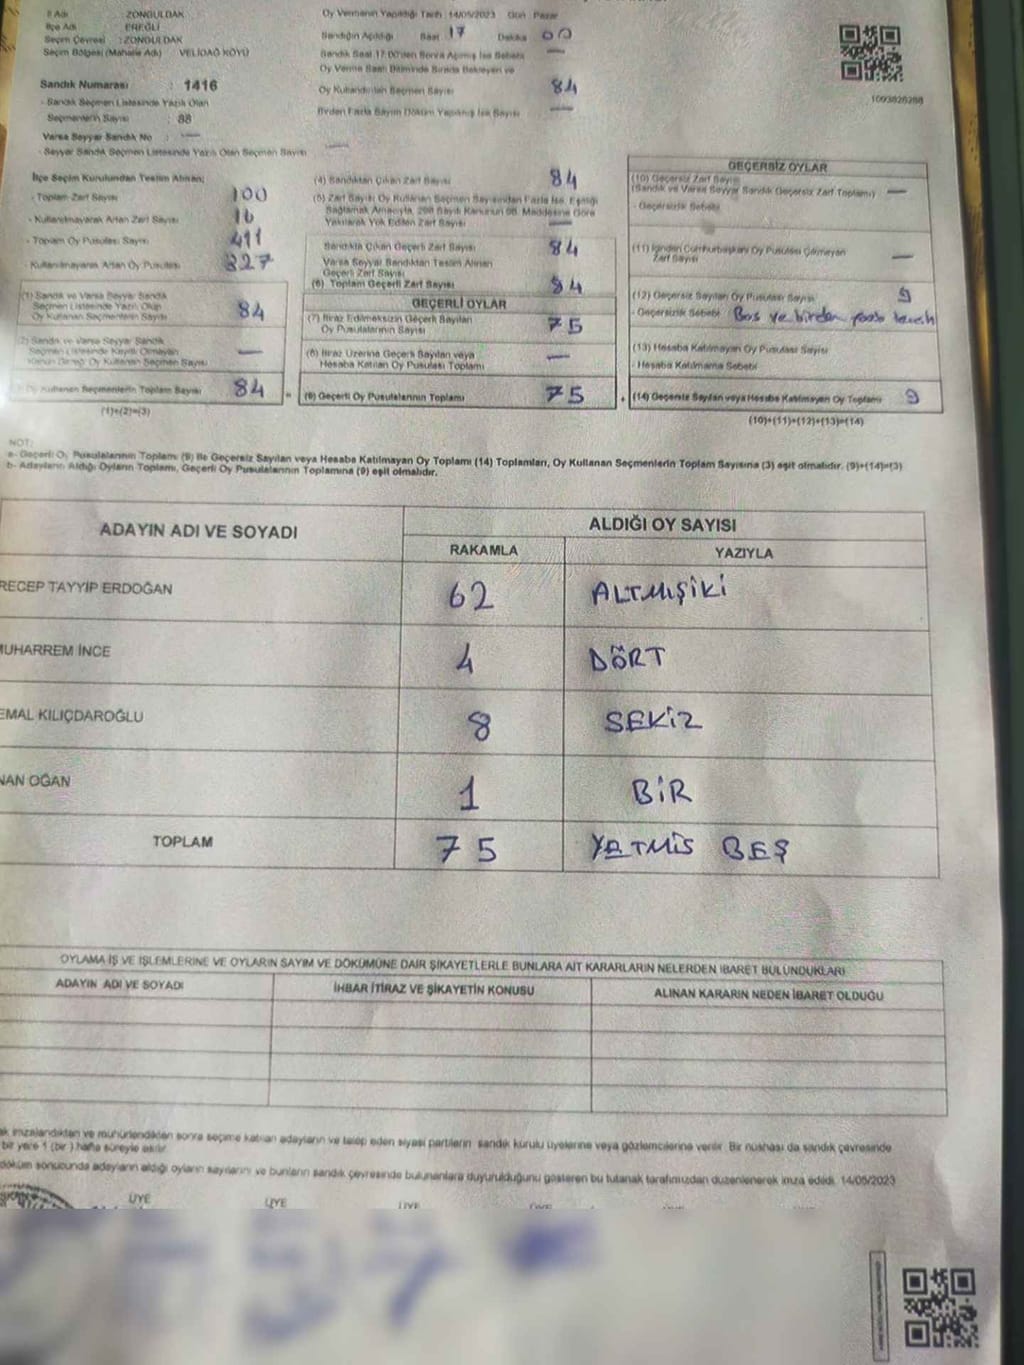 İl Adı : ZONGULDAK
İlçe Adı : EREĞLİ
Seçim Çevresi : ZONGULDAK
Seçim Bölgesi (Mahalle Adı) : VELİDAĞ KÖYÜ
Sandık Numarası : 1416
- Sandık Seçmen Listesinde Yazılı Olan
Seçmenlerin Sayısı : 88
Varsa Seyyar Sandık No : —
- Seyyar Sandık Seçmen Listesinde Yazılı Olan Seçmen Sayısı —
Oy Vermenin Yapıldığı Tarih : 14/05/2023 Gün Pazar
Sandığın Açıldığı Saat 17 Dakika 00
Sandık Saat 17.00'den Sonra Açılmış İse Sebebi —
Oy Verme Saati Bitiminde Sırada Bekleyen ve
Oy Kullandırılan Seçmen Sayısı 84
Birden Fazla Sayım Döküm Yapılmış İse Sayısı —
1093828288
İlçe Seçim Kurulundan Teslim Alınan;
- Toplam Zarf Sayısı 100
- Kullanılmayarak Artan Zarf Sayısı 16
- Toplam Oy Pusulası Sayısı 411
- Kullanılmayarak Artan Oy Pusulası 327
(1) Sandık ve Varsa Seyyar Sandık
Seçmen Listesinde Yazılı Olup
Oy Kullanan Seçmenlerin Sayısı 84
(2) Sandık ve Varsa Seyyar Sandık
Seçmen Listesinde Kayıtlı Olmayan
Kanun Gereği Oy Kullanan Seçmen Sayısı —
Oy Kullanan Seçmenlerin Toplam Sayısı 84
(1)+(2)=(3)
(4) Sandıktan Çıkan Zarf Sayısı 84
(5) Zarf Sayısı Oy Kullanan Seçmen Sayısından Fazla İse, Eşitliği
Sağlamak Amacıyla, 298 Sayılı Kanunun 98. Maddesine Göre
Yakılarak Yok Edilen Zarf Sayısı —
Sandıkta Çıkan Geçerli Zarf Sayısı 84
Varsa Seyyar Sandıktan Teslim Alınan
Geçerli Zarf Sayısı
(6) Toplam Geçerli Zarf Sayısı 84
GEÇERLİ OYLAR
(7) İtiraz Edilmeksizin Geçerli Sayılan
Oy Pusulalarının Sayısı 75
(8) İtiraz Üzerine Geçerli Sayılan veya
Hesaba Katılan Oy Pusulası Toplamı —
= (9) Geçerli Oy Pusulalarının Toplamı 75
GEÇERSİZ OYLAR
(10) Geçersiz Zarf Sayısı
(Sandık ve Varsa Seyyar Sandık Geçersiz Zarf Toplamı) —
- Geçersizlik Sebebi
(11) İçinden Cumhurbaşkanı Oy Pusulası Çıkmayan
Zarf Sayısı —
(12) Geçersiz Sayılan Oy Pusulası Sayısı 9
- Geçersizlik Sebebi Boş ve birden
(13) Hesaba Katılmayan Oy Pusulası Sayısı
- Hesaba Katılmama Sebebi
+ (14) Geçersiz Sayılan veya Hesaba Katılmayan Oy Toplamı 9
(10)+(11)+(12)+(13)=(14)
NOT:
a- Geçerli Oy Pusulalarının Toplamı (9) İle Geçersiz Sayılan veya Hesaba Katılmayan Oy Toplamı (14) Toplamları, Oy Kullanan Seçmenlerin Toplam Sayısına (3) eşit olmalıdır. (9)+(14)=(3)
b- Adayların Aldığı Oyların Toplamı, Geçerli Oy Pusulalarının Toplamına (9) eşit olmalıdır.
ADAYIN ADI VE SOYADI ALDIĞI OY SAYISI
RAKAMLA YAZIYLA
RECEP TAYYİP ERDOĞAN 62 ALTMIŞİKİ
MUHARREM İNCE 4 DÖRT
EMAL KILIÇDAROĞLU 8 SEKİZ
NAN OĞAN 1 BİR
TOPLAM 75 YETMİS BEŞ
OYLAMA İŞ VE İŞLEMLERİNE VE OYLARIN SAYIM VE DÖKÜMÜNE DAİR ŞİKAYETLERLE BUNLARA AİT KARARLARIN NELERDEN İBARET BULUNDUKLARI
ADAYIN ADI VE SOYADI İHBAR İTİRAZ VE ŞİKAYETİN KONUSU ALINAN KARARIN NEDEN İBARET OLDUĞU
ak imzalandıktan ve mühürlendikten sonra seçime katılan adayların ve talep eden siyasi partilerin sandık kurulu üyelerine veya gözlemcilerine verilir. Bir nüshası da sandık çevresinde
bir yere 1 (bir) hafta süreyle asılır.
döküm sonucunda adayların aldığı oyların sayılarını ve bunların sandık çevresinde bulunanlara duyurulduğunu gösteren bu tutanak tarafımızdan düzenlenerek imza edildi. 14/05/2023
ÜYE ÜYE ÜYE ÜYE